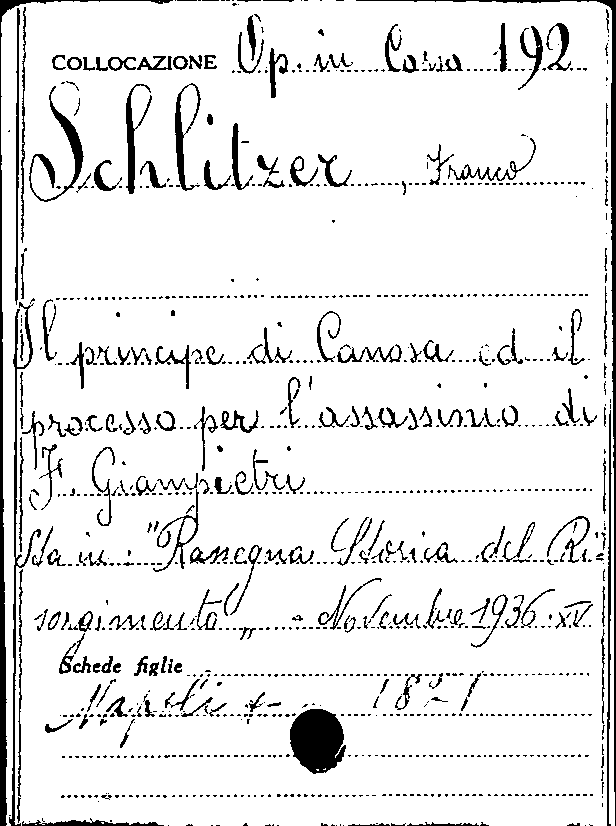 COLLOCAZIONE Op. in Corso 192
Schlitzer, Franco
Il principe di Canosa ed il
processo per l'assassinio di
F. Giampietri
Sta in: "Rassegna Storica del Ri=
sorgimento„ - Novembre 1936. XV
Schede figlie
Napoli - 1821